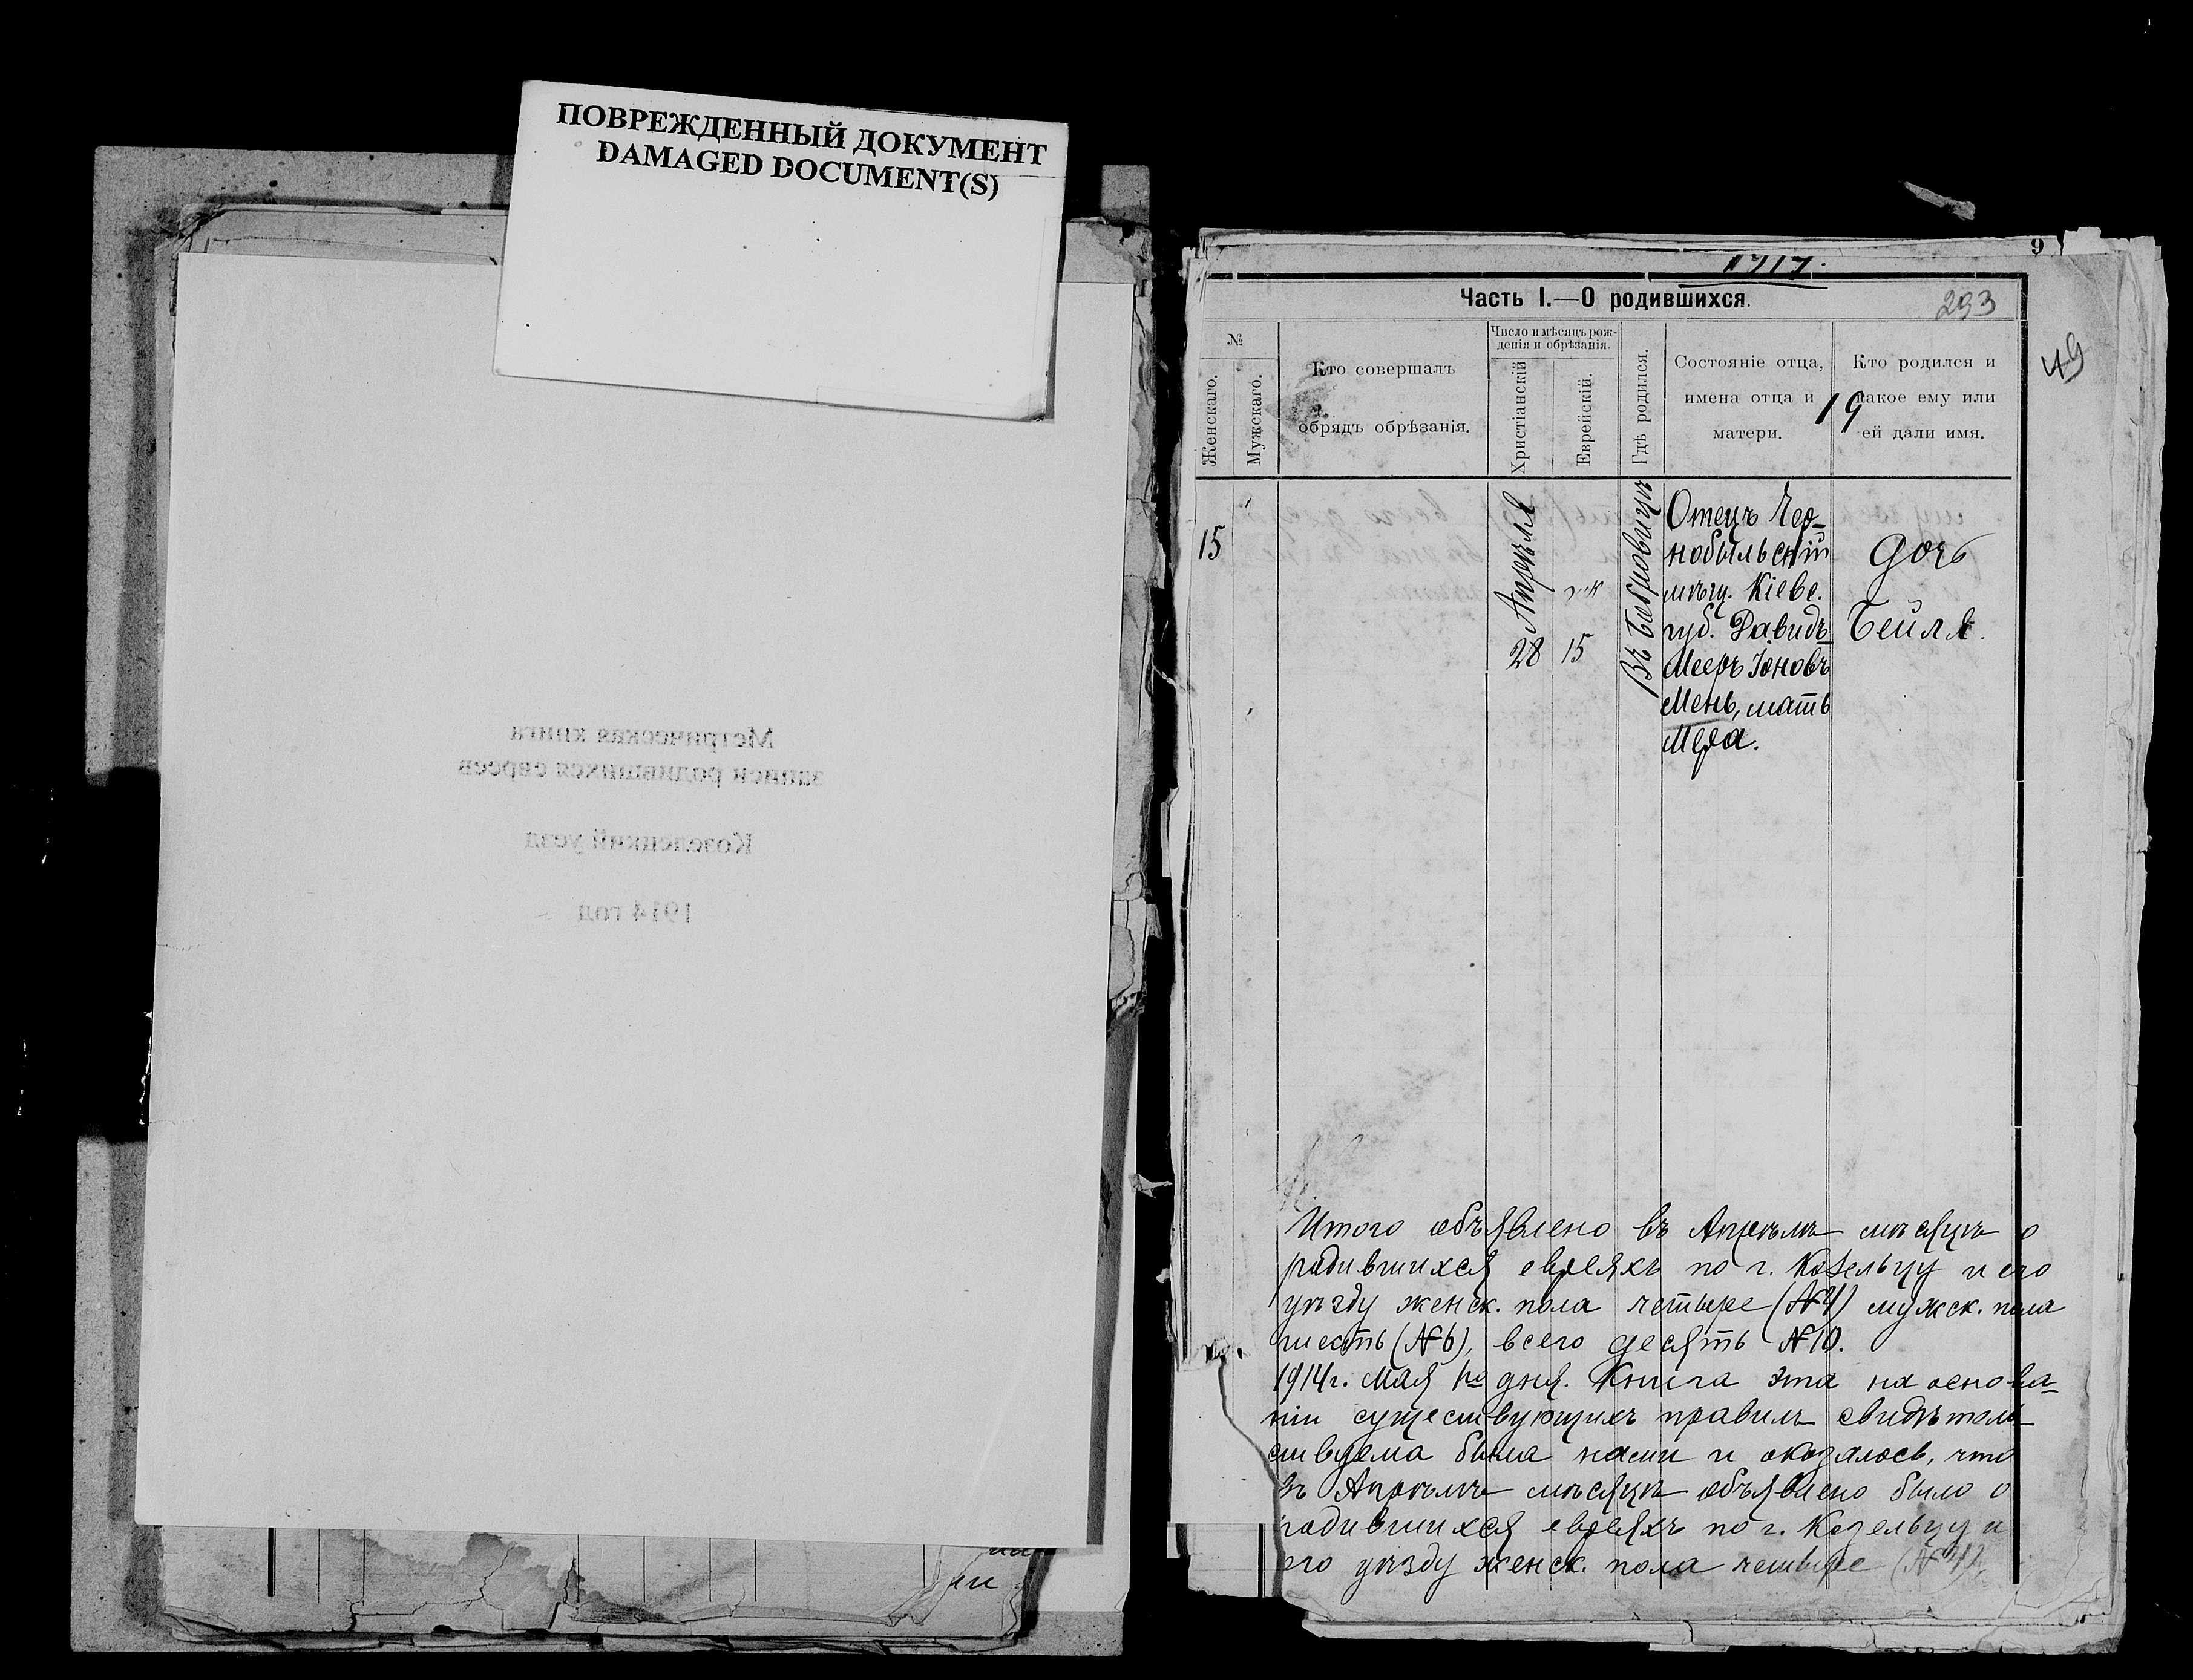 ПОВРЕЖДЕННЫЙ ДОКУМЕНТ
DAMAGED DOCUMENT(S)
Метрическая книга
записи родившихся евреев
Козелецкий уезд
1914 год
9
Часть I.—О родившихся.
293
49
№
Женскаго.
Мужскаго.
Кто совершалъ
обрядъ обрѣзанія.
Число и мѣсяцъ рож-
денія и обрѣзанія.
Христіанскій
Еврейскій.
Гдѣ родился.
Состояніе отца,
имена отца и
матери.
Кто родился и
какое ему или
ей дали имя.
19
15
Апрѣля
28
15
Въ Бобровицѣ
Отецъ Чер-
нобыльскій
мѣщ. Кіевс.
губ. Давидъ-
Мееръ Іоновъ
Мень, мать
Мера.
Дочь
Бейля.
Итого объявлено въ Апрѣлѣ мѣсяцѣ о
родившихся евреяхъ по г. Козельцу и его
уѣзду женск. пола четыре (№4) мужск. пола
шесть (№6), всего десять №10.
1914г. Мая 1го дня. Книга эта на основа-
ніи существующихъ правилъ свидѣтель-
ствуема была нами и оказалось, что
въ Апрѣлѣ мѣсяцѣ объявлено было о
родившихся евреяхъ по г. Козельцу и
его уѣзду женск. пола четыре (№4),